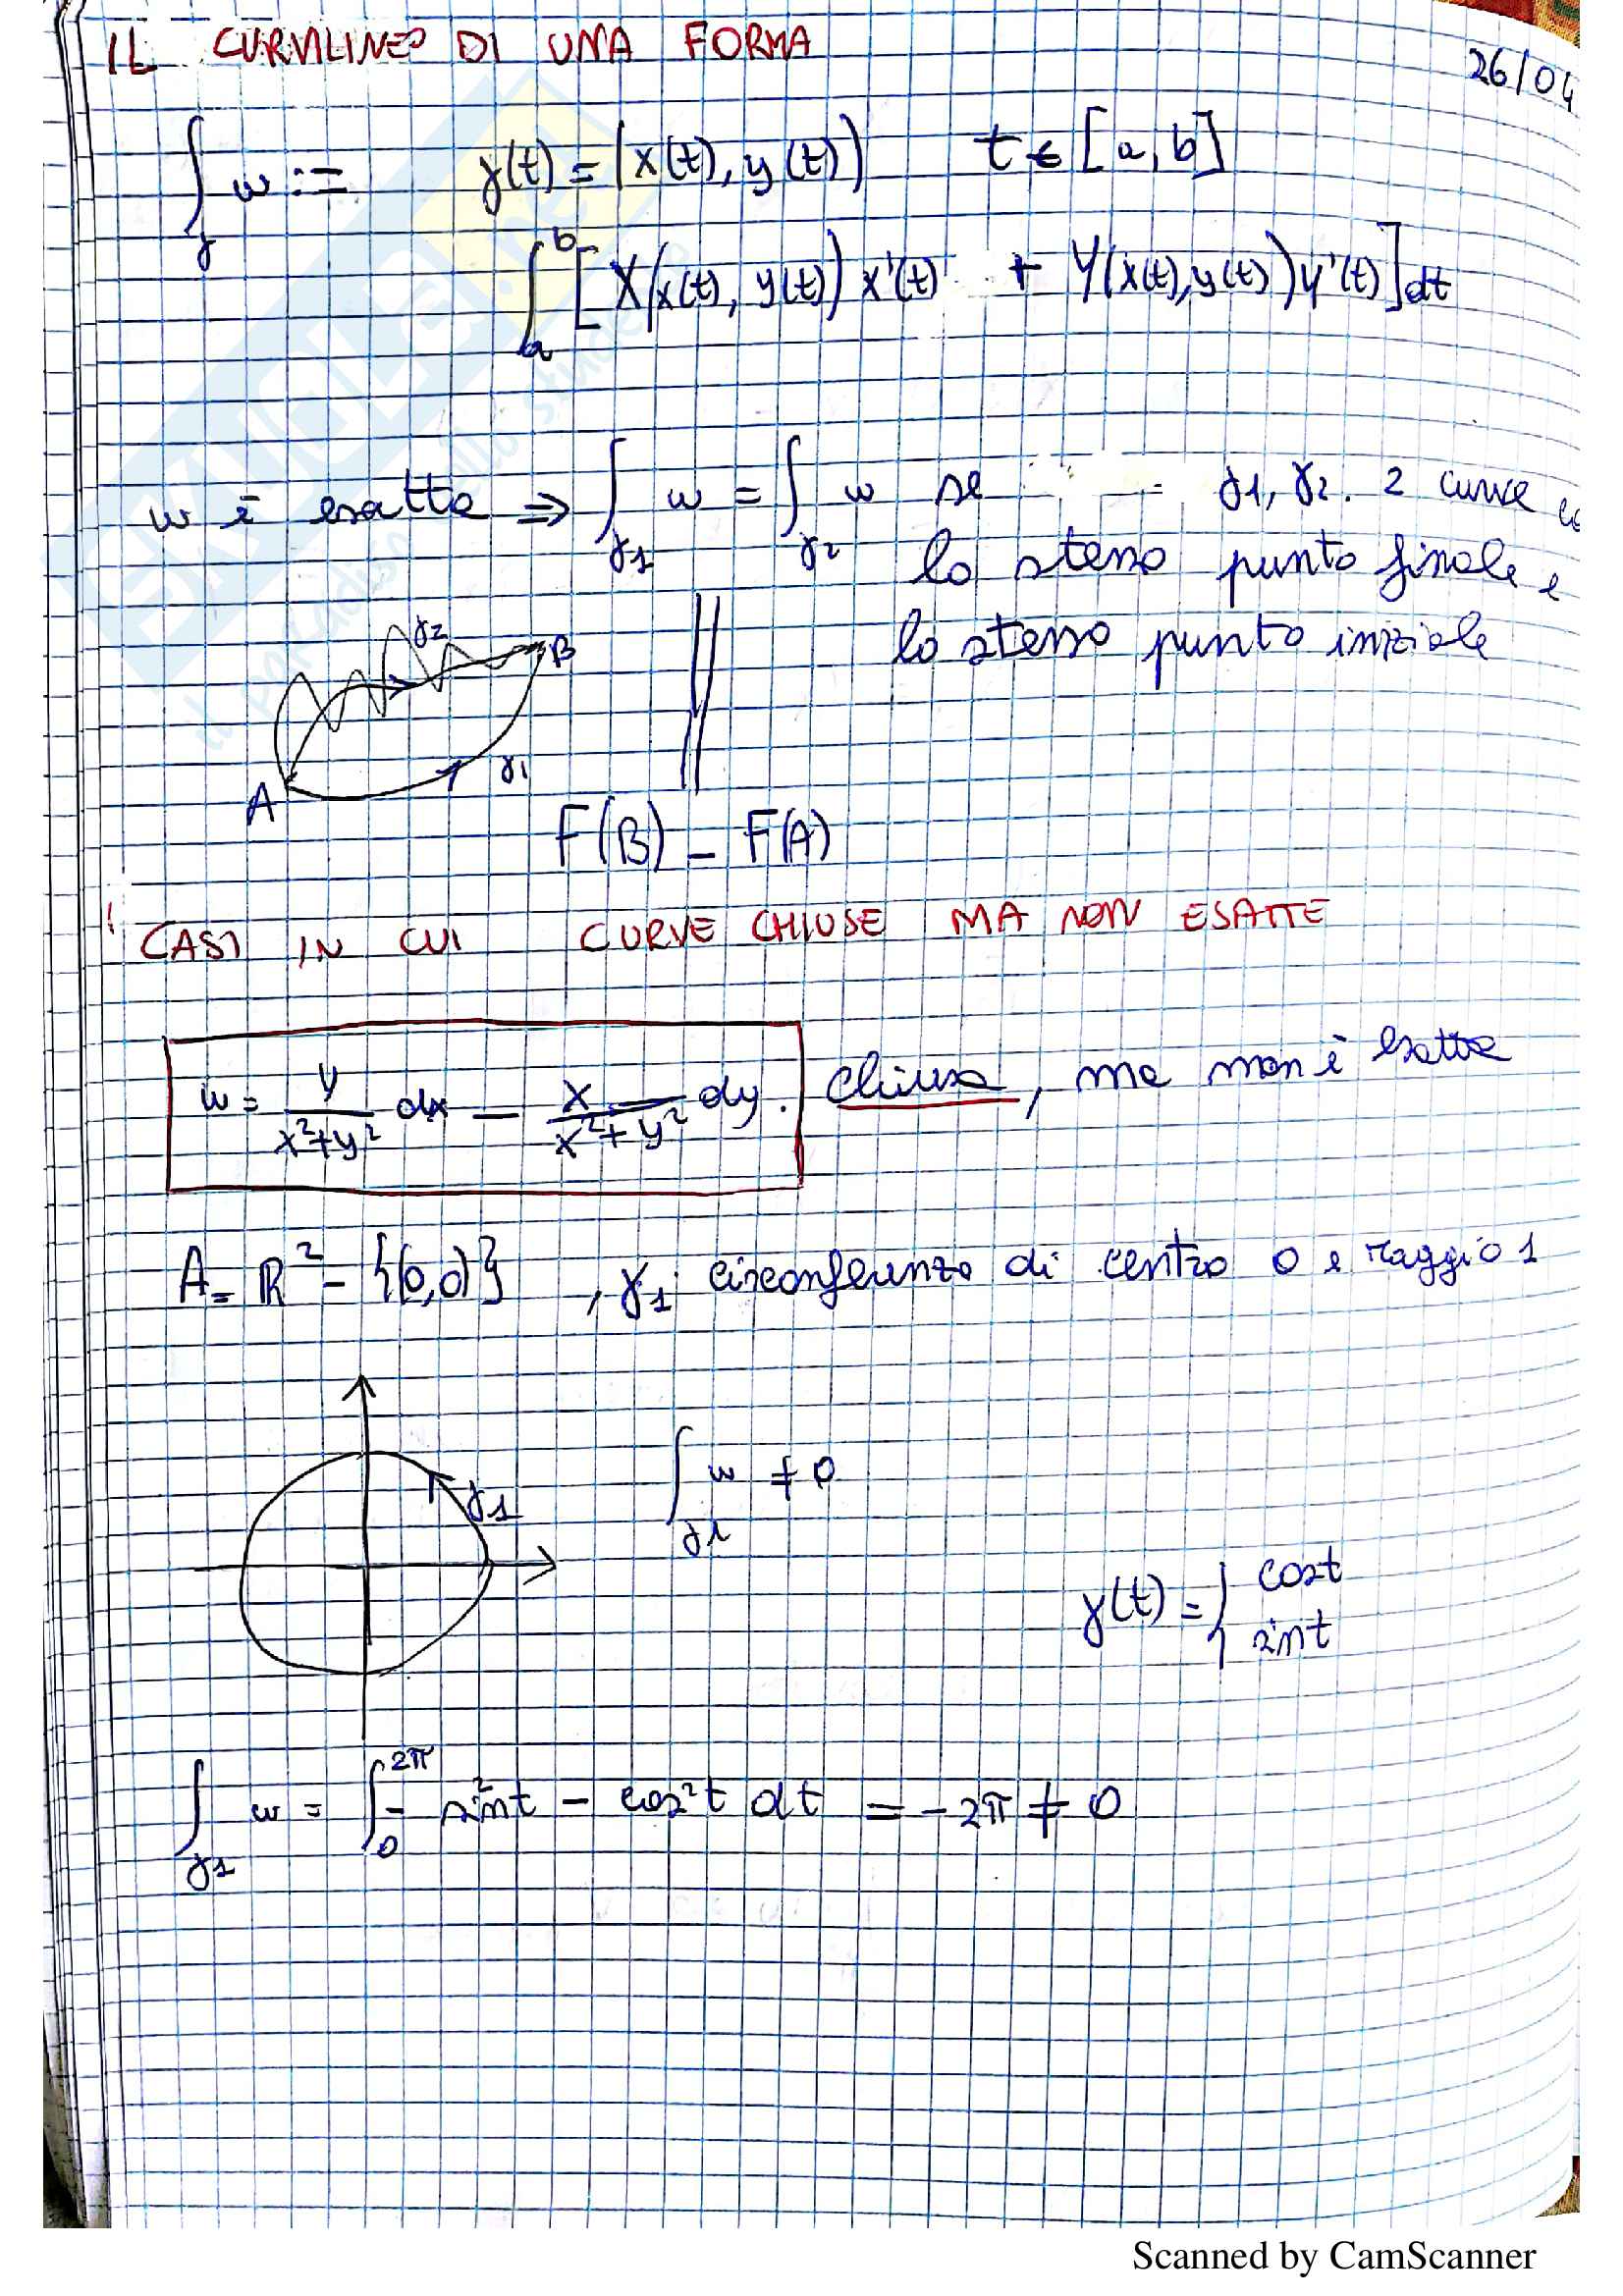 IL CURVILINEO DI UNA FORMA
26/04
∫_γ w := γ(t) = (x(t), y(t)) t ∈ [a, b]
∫_a^b [X(x(t), y(t)) x'(t) + Y(x(t), y(t)) y'(t)] dt
w è esatta ⇒ ∫_γ1 w = ∫_γ2 w se γ1, γ2. 2 curve co
lo stesso punto finale e
lo stesso punto iniziale
γ2
B
γ1
A
F(B) - F(A)
! CASI IN CUI CURVE CHIUSE MA NON ESATTE
w = y/(x²+y²) dx - x/(x²+y²) dy. Chiusa, ma non è esatta
A = R² - {(0,0)}, γ1: circonferenza di centro 0 e raggio 1
γ1
∫_γ1 w ≠ 0
γ(t) = { cost
sint
∫_γ1 w = ∫_0^2π - sin²t - cos²t dt = -2π ≠ 0
SKUOLA.net
il paradiso dello studente
Scanned by CamScanner